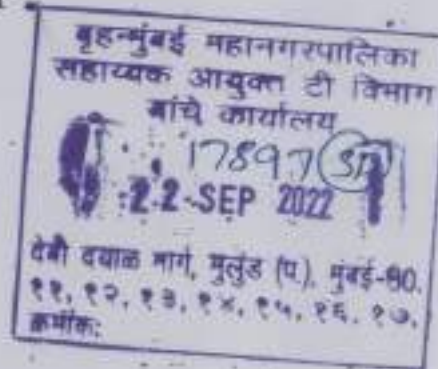 बृहन्मुंबई महानगरपालिका
सहाय्यक आयुक्त टी विभाग
यांचे कार्यालय
17897
22 SEP 2022
देवी दयाळ मार्ग, मुलुंड (प.), मुंबई-80.
११, १२, १३, १४, १५, १६, १७,
क्रमांक: